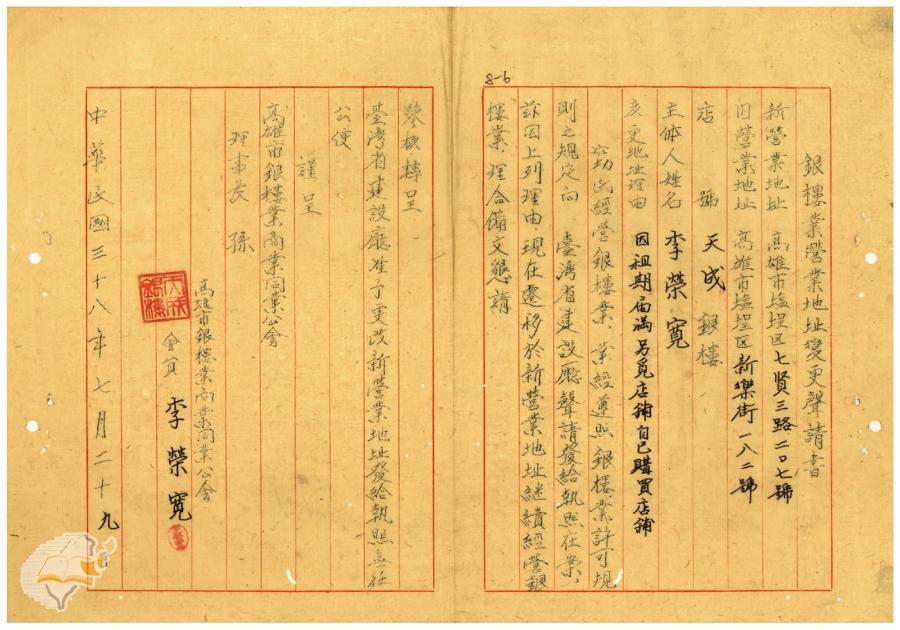 8-6
銀樓業營業地址變更聲請書
新營業地址 高雄市塩埕区七賢三路二0七號
旧營業地址 高雄市塩埕区新樂街一八二號
店 號 天成銀樓
主体人姓名 李榮寬
変更地址理由 因租期届滿另覓店鋪自己購買店鋪
窃民經營銀樓業 業經遵照銀樓業許可規
則之規定向 臺灣省建設廳聲請發給執照在案、
茲因上列理由、現在遷移於新營業地址継續經營銀
樓業 理合備文懇請
鑒核轉呈
臺灣省建設廳准予更改新營業地址發給執照無任
公便
謹呈
高雄市銀樓業商業同業公會
理事長 孫
高雄市銀樓業商業同業公會
會員 李榮寬
天成銀樓
中華民國三十八年七月二十九日